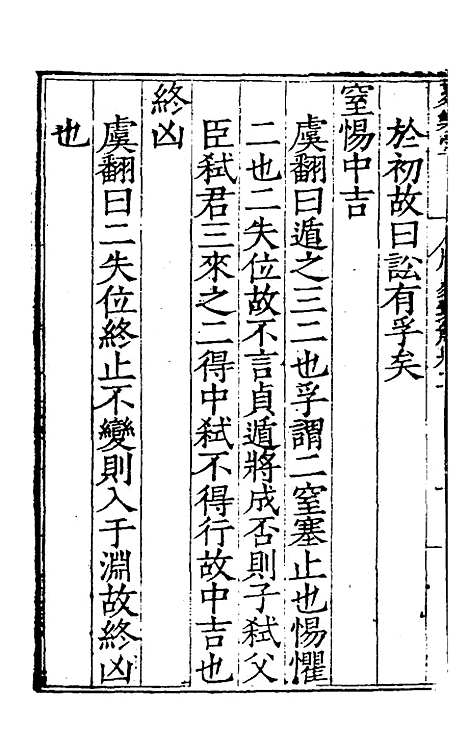 於初故曰訟有孚矣
窒惕中吉
虞翻曰遁之三二也孚謂二窒塞止也惕懼
二也二失位故不言貞遁將成否則子弒父
臣弒君三來之二得中弒不得行故中吉也
終凶
虞翻曰二失位終止不變則入于淵故終凶
也